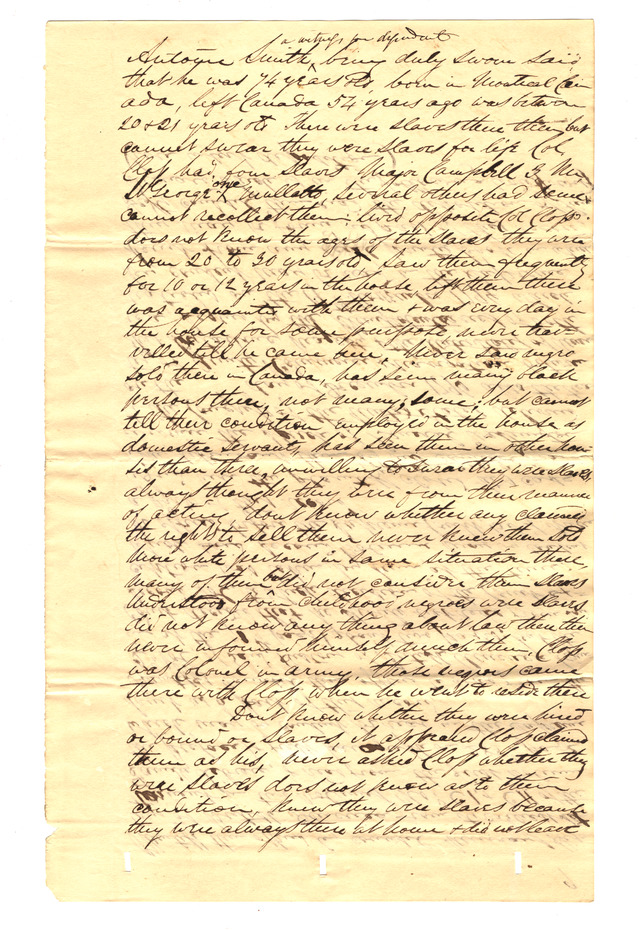 a witness for defendant
Antoyne Smith, being duly sworn said
that he was 74 years old, born in Montreal Can
ada, left Canada 54 years ago was between
20 & 21 years old There were slaves there then but
cannot swear they were slaves for life Col
Closs had four slaves Major Campbell 3 Mr
St George one Mullatto, several others had some
cannot recollect them; lived opposite Col Closs.
does not know the ages of the slaves they were
from 20 to 30 years old, saw them frequently
for 10 or 12 years in the house, left them there
was acquainted with them & was every day in
the house for some purpose never tra
velled till he came here, Never saw negro
sold there in Canada, has seen many black
persons there, not many, some, but cannot
tell their condition employed in the house as
domestic servants, has seen them in other hou
ses than these, unwilling to swear they were slaves,
always thought they were from their manner
of acting dont know whether any claimed
the right to sell them never knew them sold
More white persons in same situation there
many of them but did not consider them slaves
Understood from childhood negroes were slaves
did not know any thing about law then then
never informed himself much then, Closs
was Colonel in army, these negroes came
there with Closs when he went to reside there
Dont know whether they were hired
or bound or slaves, it appeared Closs claimed
them as his, never asked Closs whether they
were slaves does not know as to their
condition, knew they were slaves because
they were always there at home & did not leave